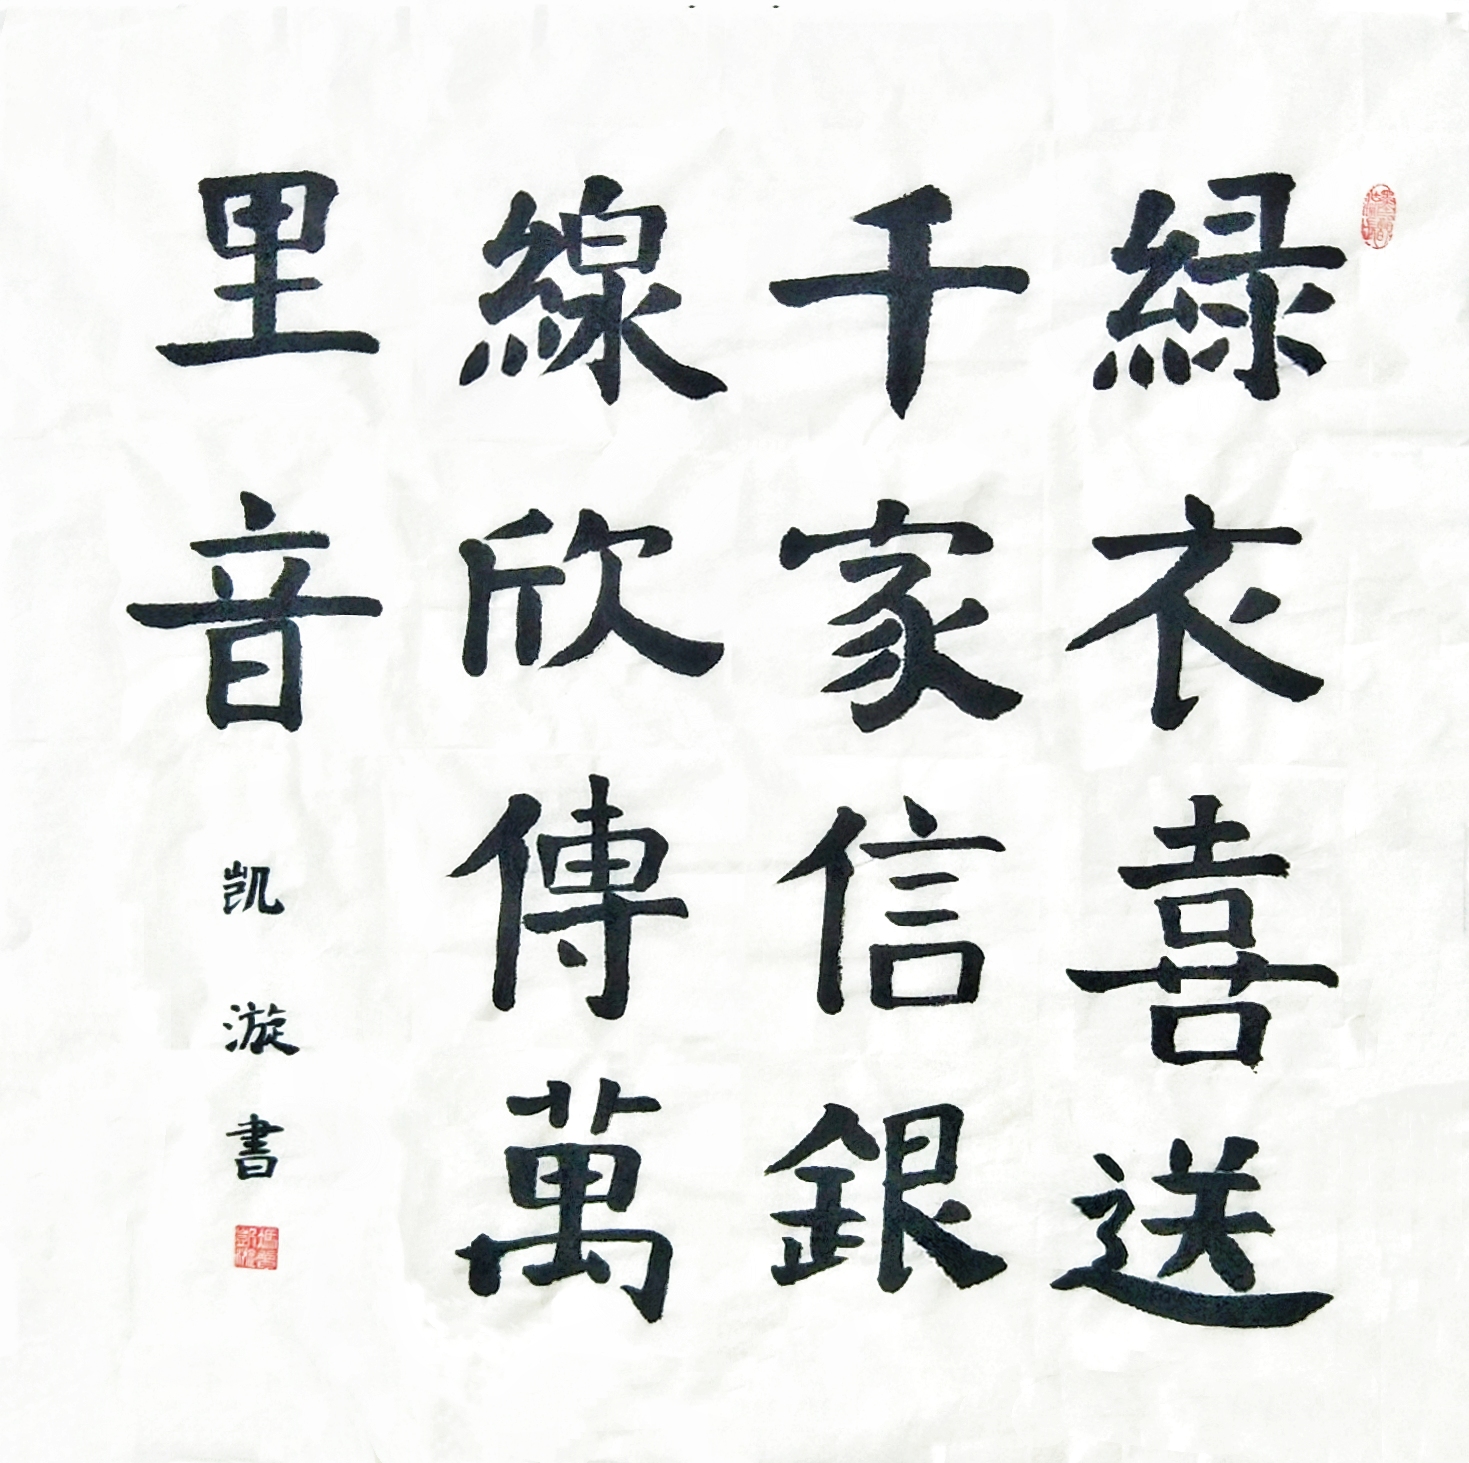 緑衣喜送
千家信銀
線欣傳萬
里音
凯漩書